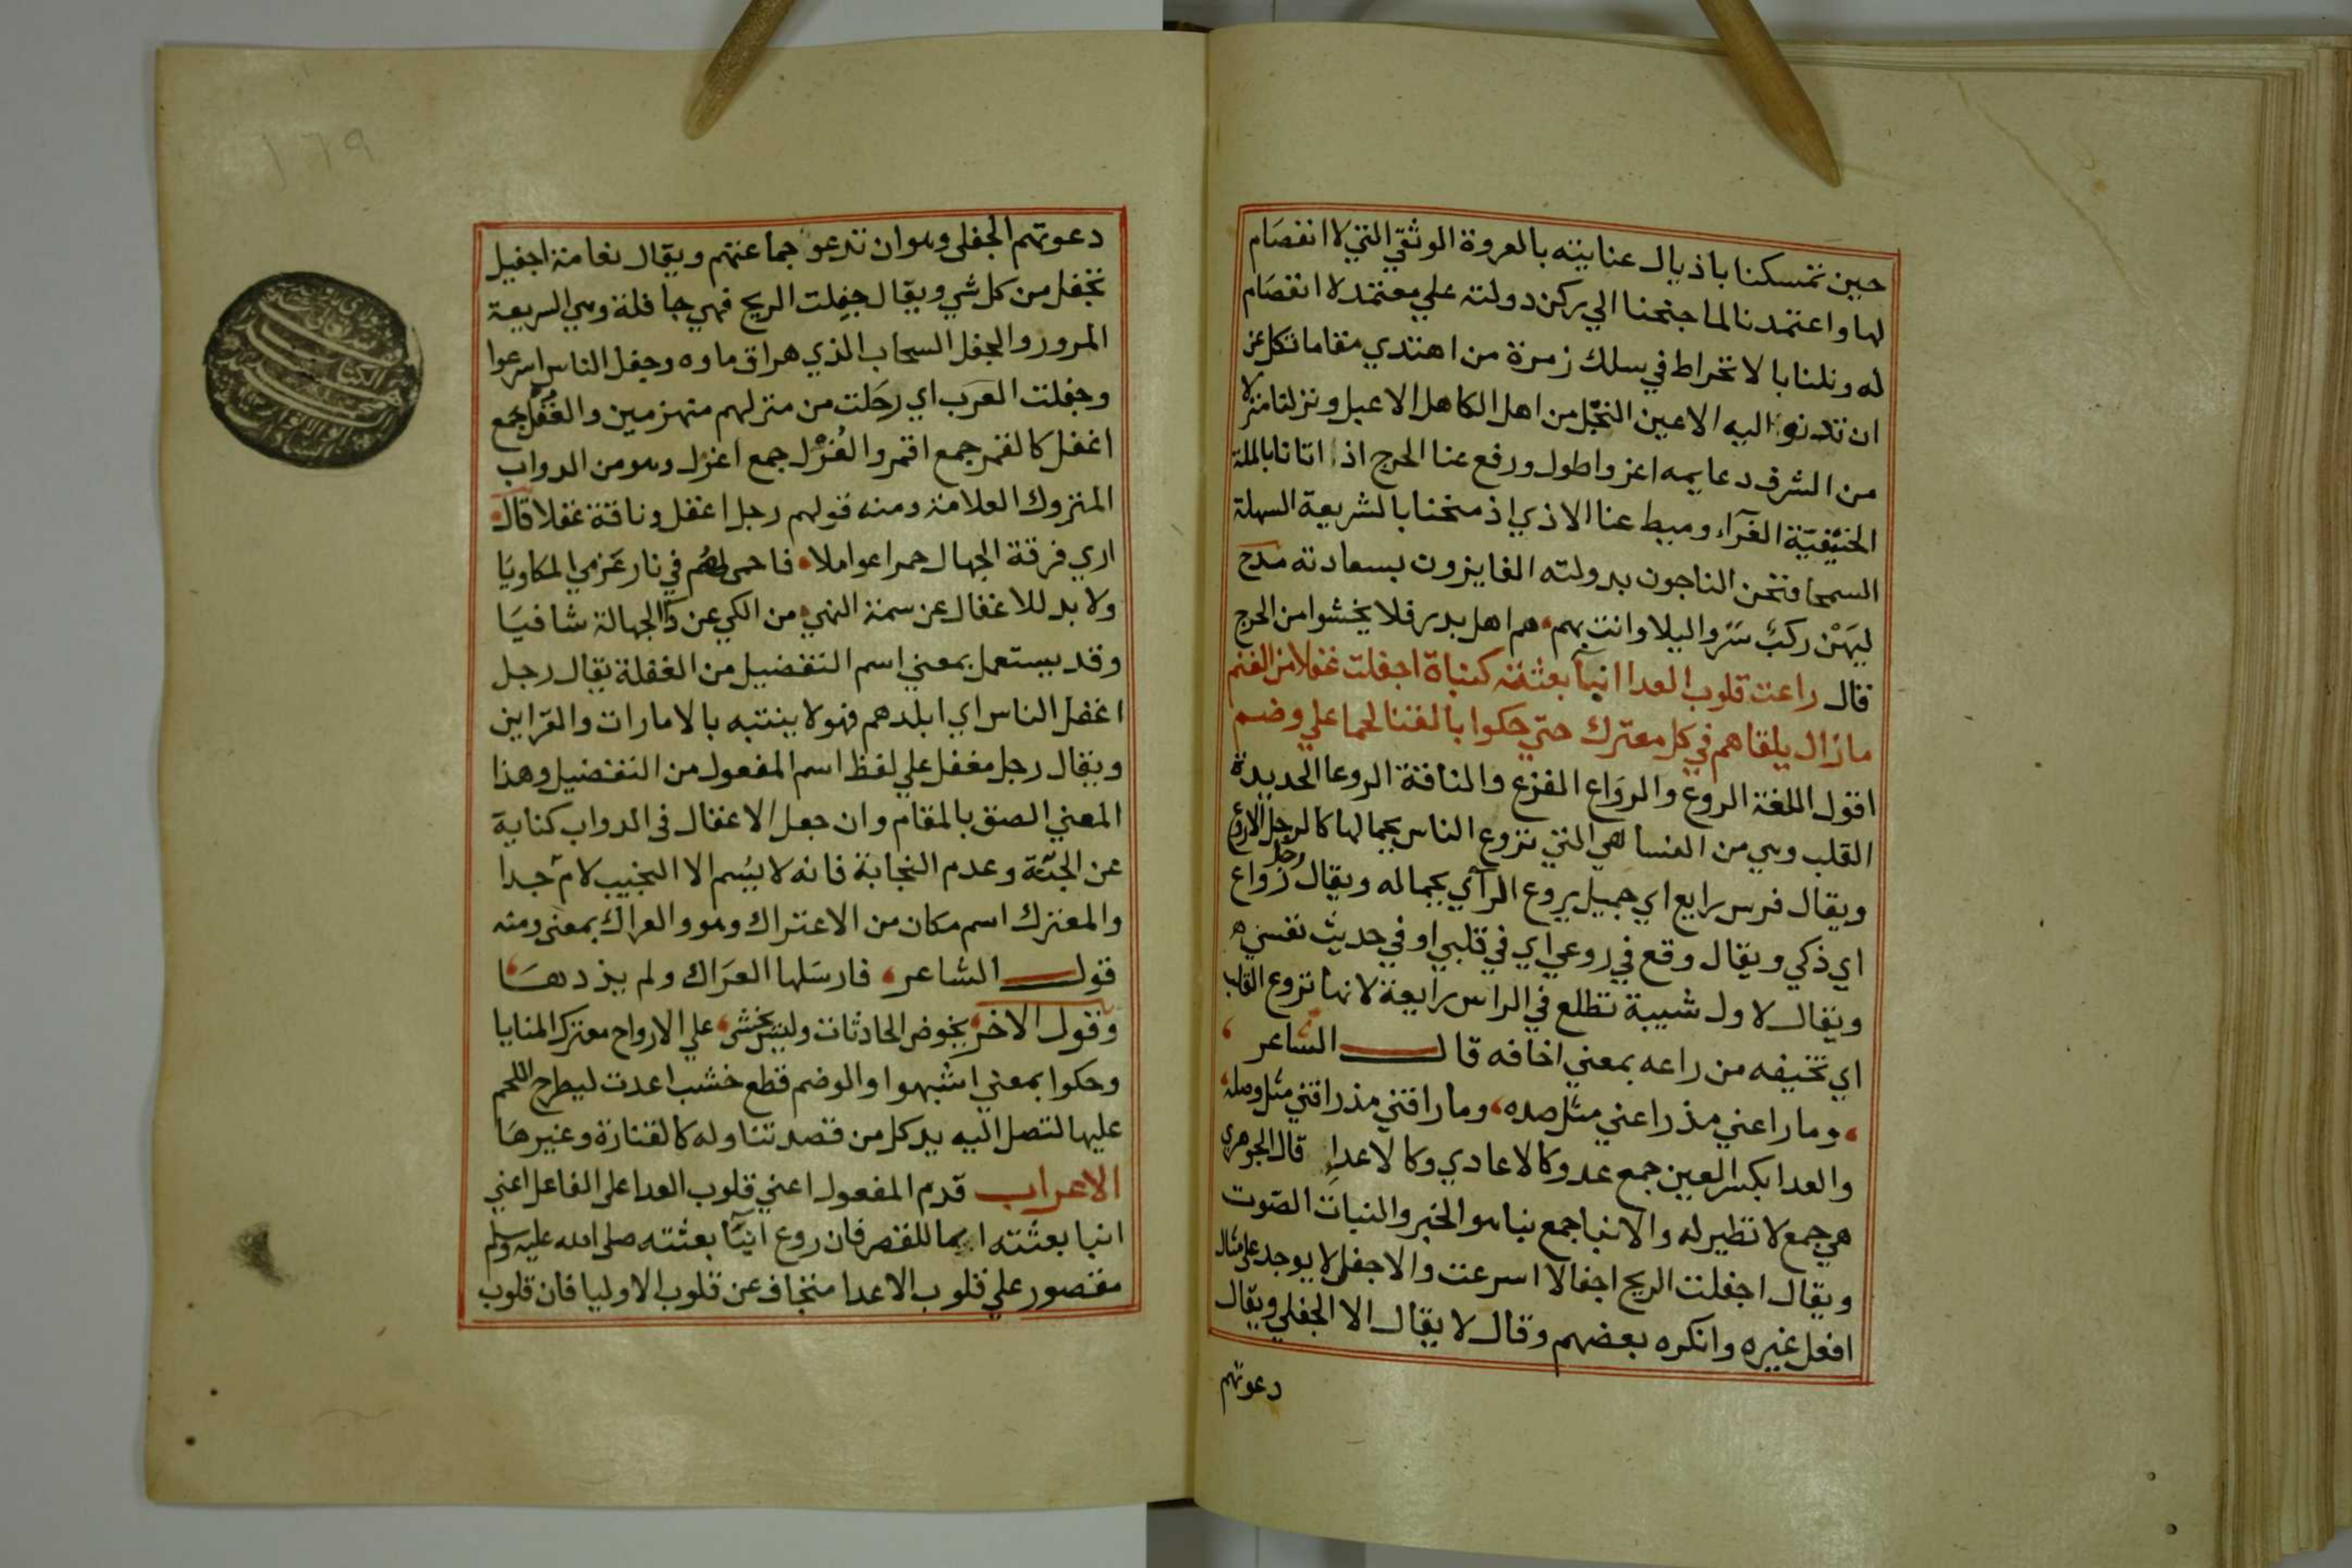 حين تمسكنا باذيال عنايته بالعروة الوثقي التي لا انفصام
لها واعتمدنا لما جنحنا الي ركن دولته علي معتمد لا انقصام
له ونلنا بالانخراط في سلك زمرة من اهتدي مقاما تكل عن
ان تدنو اليه الاعين النجل من اهل الكاهل الاعبل ونزلنا منزلا
من الشرف دعايمه اعز واطول ورفع عنا الحرج اذا اتانا بالملة
الحنيفية الغرآء وميط عنا الاذي اذ منحنا بالشريعة السهلة
السمحا فنحن الناجون بدولته الفايزون بسعادته مدح
ليهن ركب سروا ليلا وانت بهم هم اهل بدر فلا يخشوا من الحرج
قال راعت قلوب العدا انبآ بعثته كنباة اجفلت غفلا من الغنم
مازال يلقاهم في كل معترك حتي حكوا بالقنا لحما علي وضم
اقول اللغة الروع والرواع الفزع والناقة الروعا الحديدة
القلب وهي من النسا هي التي تروع الناس بجمالها كالرجل الاروع
ويقال فرس رايع اي جميل يروع الرآي بجماله ويقال رجل رواع
اي ذكي ويقال وقع في روعي اي في قلبي او في حديث نفسي
ويقال لاول شيبة تطلع في الراس رايعة لانها تروع القلب
اي تخيفه من راعه بمعني اخافه قال الشاعر
وما راعني مذ راعني مثل صده وما راقني مذ راقني مثل وصله
والعدا بكسر العين جمع عدو كالاعادي وكالاعدا قال الجوهري
هي جمع لا نظير له والانبا جمع نبا هو الخبر والنبات الصوت
ويقال اجفلت الريح اجفالا اسرعت والاجفل لا يوجد علي مثال
افعل غيره وانكره بعضهم وقال لا يقال الا الجفلي ويقال
دعوتهم
دعوتهم الجفلي وهو ان تدعو جماعتهم ويقال نعامة اجفيل
تجفل من كل شي ويقال جفلت الريح فهي جافلة وهي السريعة
المرور والجفل السحاب الذي هراق ماوه وجفل الناس اسرعوا
وجفلت العرب اي رحلت من منزلهم منهزمين والغفل جمع
اغفل كالقمر جمع اقمر والغزل جمع اعزل وهو من الدواب
المتروك العلامة ومنه قولهم رجل اغفل وناقة غفلا قال
اري فرقة الجهال حمرا عواملا فاحمي لهم في نار عزمي المكاويا
ولا بد للاغفال عن سمة النهي من الكي عن دآ الجهالة شافيا
وقد يستعمل بمعني اسم التفضيل من الغفلة يقال رجل
اغفل الناس اي ابلدهم فهو لا ينتبه بالامارات والقراين
ويقال رجل مغفل علي لفظ اسم المفعول من التفضيل وهذا
المعني الصق بالمقام وان جعل الاغفال في الدواب كناية
عن الجثة وعدم النجابة فانه لا يسم الا النجيب لام جدا
والمعترك اسم مكان من الاعتراك وهو والعراك بمعني ومنه
قول الشاعر فارسلها العراك ولم يذدها
وقول الاخر يخوض الحادثات وليس يخشي علي الارواح معترك المنايا
وحكوا بمعني اشبهوا والوضم قطع خشب اعدت ليطرح اللحم
عليها لتصل اليه يد كل من قصد تناوله كالقنارة وغيرها
الاعراب قدم المفعول اعني قلوب العدا علي الفاعل اعني
انبا بعثته ايما للقصر فان روع انبآ بعثته صلي الله عليه وسلم
مقصور علي قلوب الاعدا متجاف عن قلوب الاوليا فان قلوب
١٦٩